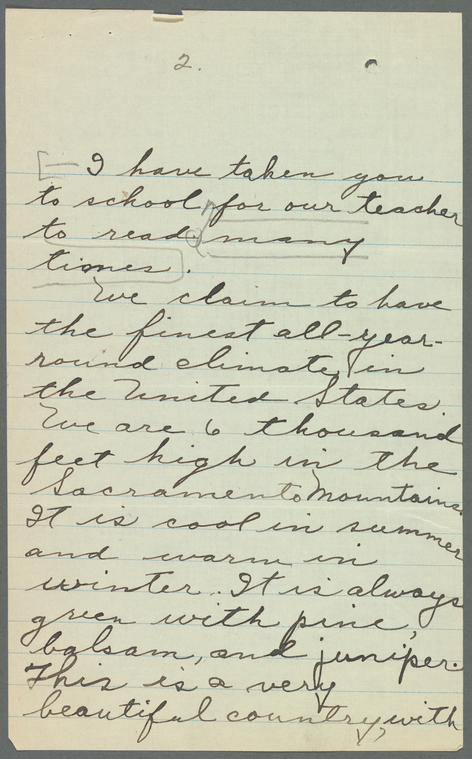 2.
I have taken you
to school, for our teacher
to read many
times.
We claim to have
the finest all-year-
round climate, in
the United States.
We are 6 thousand
feet high in the
Sacramento Mountains.
It is cool in summer
and warm in
winter. It is always
green with pine,
balsam, and juniper.
This is a very
beautiful country, with